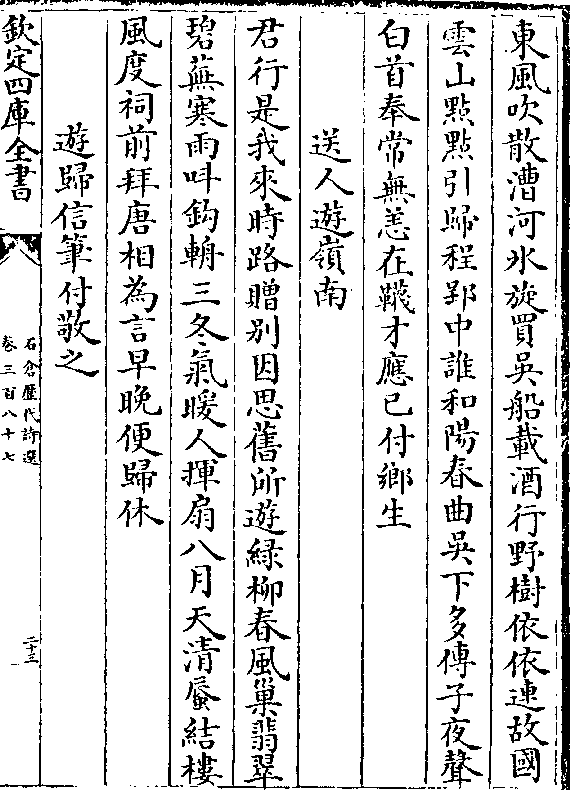 東風吹散漕河氷旋買吳船載酒行野樹依依連故國
雲山點點引歸程郢中誰和陽春曲吳下多傳子夜聲
白首奉常無恙在韈才應已付鄉生
送人遊嶺南
君行是我來時路贈别因思舊所遊緑柳春風巢翡翠
碧蕪寒雨呌鈎輈三冬氣暖人揮扇八月天清蜃結樓
風度祠前拜唐相為言早晚便歸休
遊歸信筆付敬之
欽定四庫全書
石倉歷代詩選
卷三百八十七
二十三